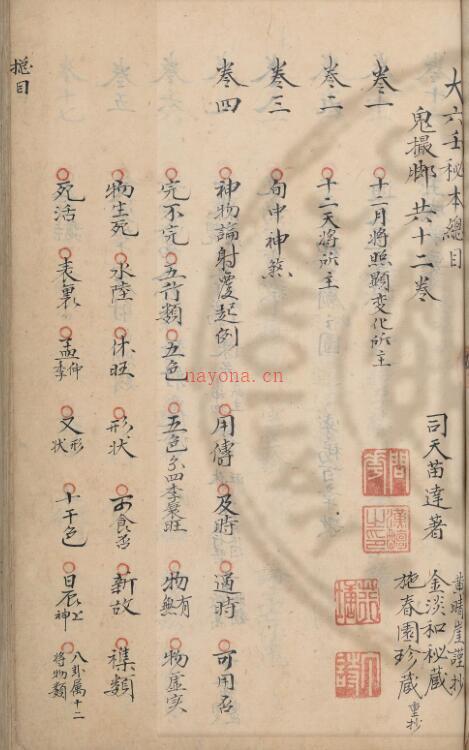 大六壬秘本總目
鬼撮脚 共十二卷
司天苗達著
黄晴崖謹抄
金淡和秘藏
施春園珍藏 重抄
卷一 十二月將照顯變化所主
卷二 十二天將所主
卷三 句中神煞
卷四 神物論射覆起例 用傳 及時 過時 可用否
完不完 五行類 五色 五色分四季衰旺 物有無 物虛实
物生死 水陸 休旺 形状 可食否 新故 襍類
死活 表裏 孟仲季 又形状 十干色 日辰上神 八卦属十二將物類
總目
nayona.cn